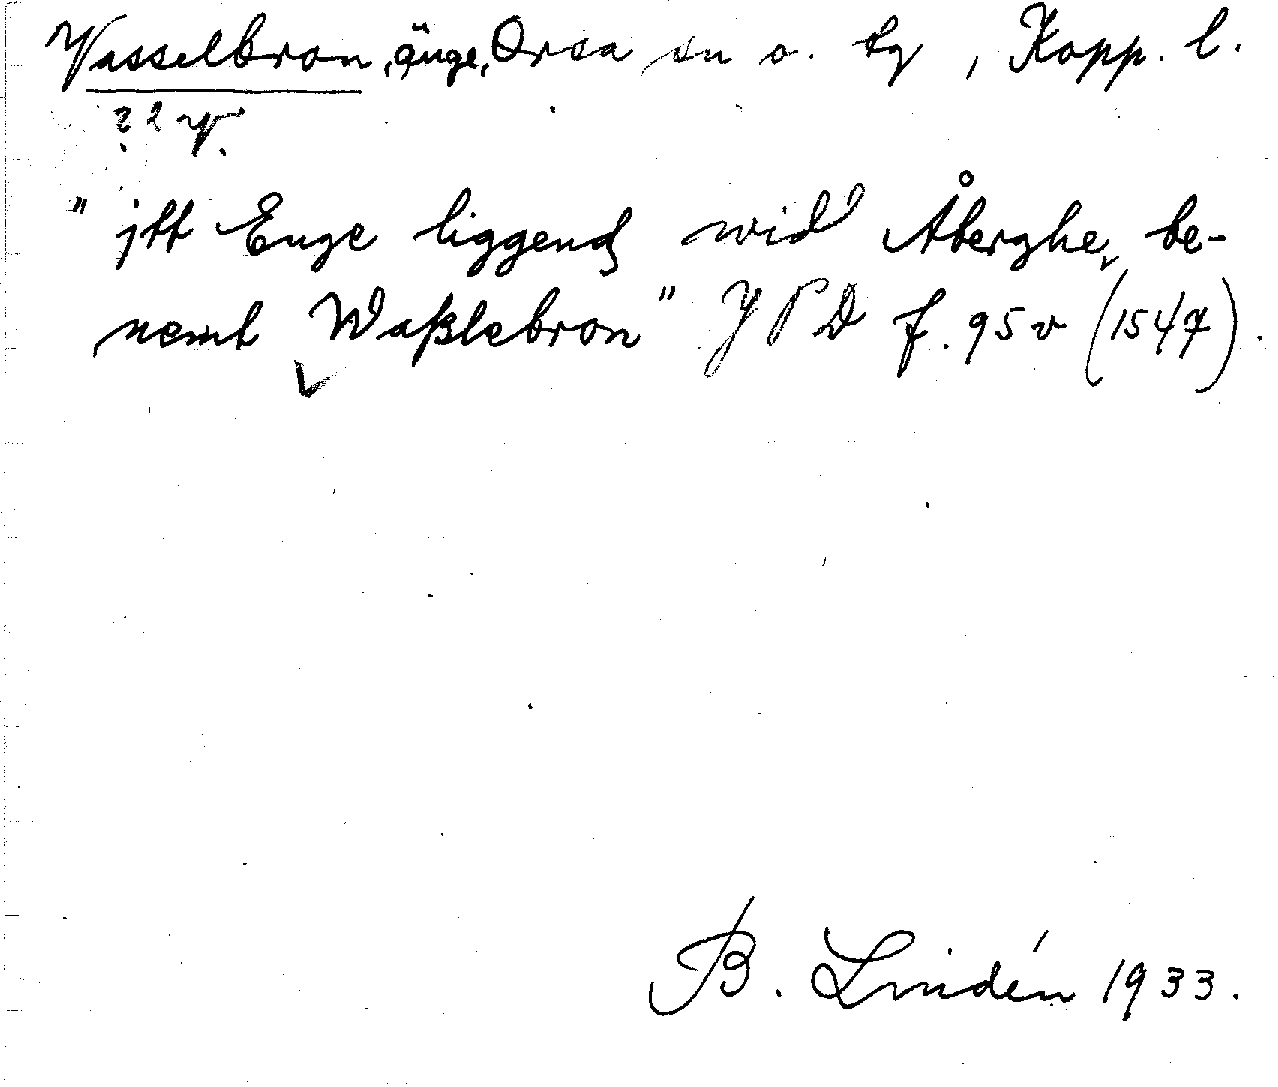 Vasselbron, änge, Orsa sn o. tg, Kopp. l.
"jtt Enge liggend wid Åberghe, be-
nemt Waßlebron" JPD f. 95v (1547).
B. Lindén 1933.